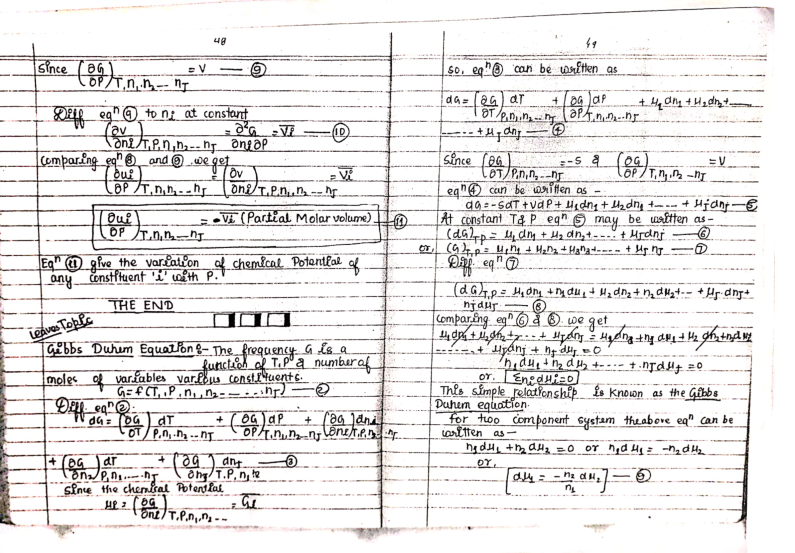 48
Since (∂G/∂P)T,n₁.n₂-- nJ = V — ⑨
Diff eqⁿ ⑨ to ni at constant
(∂v/∂ni)T,P,n₁,n₂--- nJ = ∂²G/∂ni∂P = V̅i — ⑩
Comparing eqⁿ ⑧ and ⑨ we get
(∂ui/∂P)T,n₁,n₂--- nJ = (∂v/∂ni)T,P,n₁,n₂ -- nJ = V̅i
(∂ui/∂P)T,n₁,n₂---nJ = V̅i (Partial Molar volume) — ⑪
Eqⁿ ⑪ give the variation of chemical Potential of
any constituent 'i' with P.
THE END
Leaves Topic
Gibbs Duhem Equation :- The frequency G is a
function of T,P & number of
moles of variables various constituents.
G = f(T, P, n₁, n₂------nJ) — ②
Diff. eqⁿ ②
dG = (∂G/∂T)P,n₁.n₂--nJ dT + (∂G/∂P)T,n₁,n₂--nJ dP + (∂G/∂n₁)T,P,n₂--nJ dn₁
+ (∂G/∂n₂)P,n₁,---nJ dT + (∂G/∂nJ)T.P,n₁ n₂ dnJ — ③
Since the chemical Potential
μi = (∂G/∂ni)T,P,n₁,n₂-- = G̅i
49
so, eqⁿ ③ can be written as
dG = (∂G/∂T)P,n₁,n₂--nJ dT + (∂G/∂P)T,n₁,n₂--nJ dP + μ₁dn₁ + μ₂dn₂+----
----- + μJ dnJ — ④
Since (∂G/∂T)P,n₁,n₂--nJ = -S & (∂G/∂P)T,n₁,n₂ -nJ = V
eqⁿ ④ can be written as -
dG = -SdT + VdP + μ₁dn₁ + μ₂dn₂ +---- + μJdnJ — ⑤
At constant T & P eqⁿ ⑤ may be written as -
(dG)T,P = μ₁dn₁ + μ₂dn₂ +---- + μJdnJ — ⑥
or, (G)T,P = μ₁n₁ + μ₂n₂ + μ₃n₃+---- + μJ nJ — ⑦
Diff. eqⁿ ⑦
(dG)T,P = μ₁dn₁ + n₁dμ₁ + μ₂dn₂ + n₂dμ₂+-- + μJ.dnJ+
nJdμJ — ⑧
Comparing eqⁿ ⑥ & ⑧ we get
μ₁dn₁ + μ₂dn₂+---- + μJdnJ = μ₁dn₁ + n₁dμ₁ + μ₂dn₂+n₂dμ₂
------ + μJdnJ + nJdμJ = 0
n₁dμ₁ + n₂dμ₂ +---- + nJdμJ = 0
or. Σnidμi=0
This simple relationship is known as the Gibbs
Duhem equation.
for two component system the above eqⁿ can be
written as -
n₁dμ₁ + n₂dμ₂ = 0 or n₁dμ₁ = -n₂dμ₂
or,
[dμ₁ = -n₂/n₁ dμ₂] — ⑨